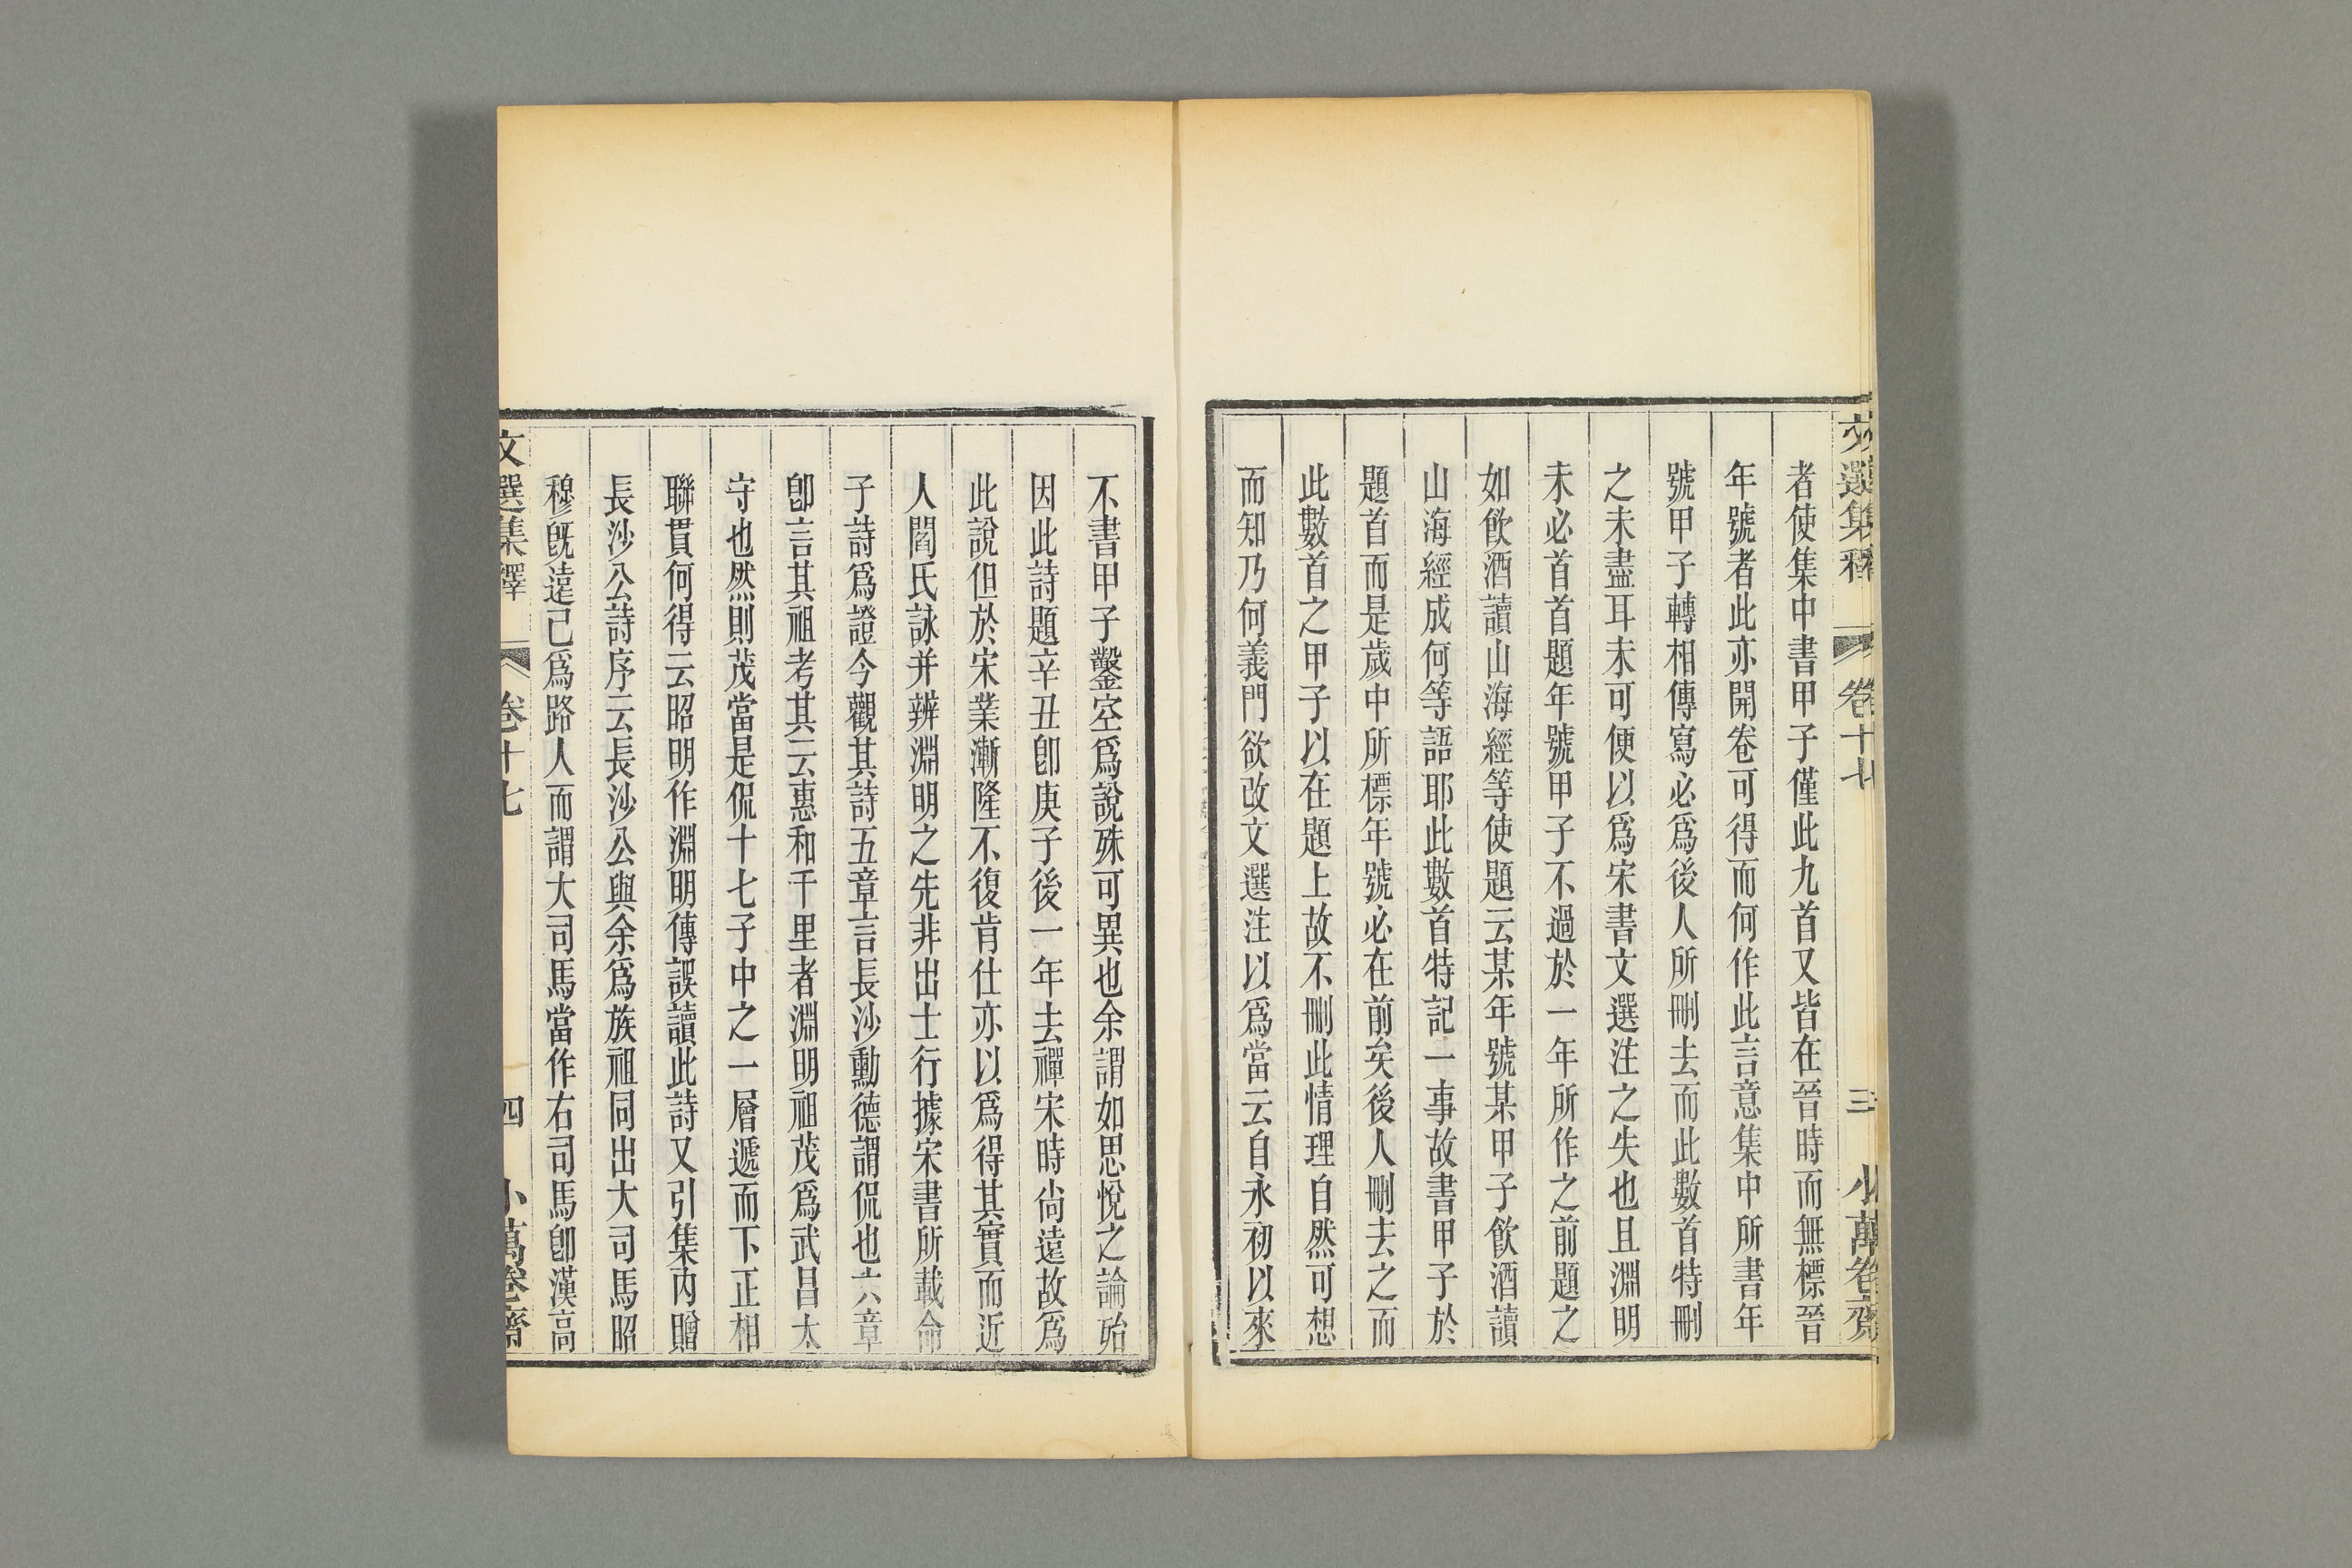 文選集釋 卷十七 三 小萬卷齋
者使集中書甲子僅此九首又皆在晉時而無標晉
年號者此亦開卷可得而何作此言意集中所書年
號甲子轉相傳寫必爲後人所刪去而此數首特刪
之未盡耳未可便以爲宋書文選注之失也且淵明
未必首首題年號甲子不過於一年所作之前題之
如飮酒讀山海經等使題云某年號某甲子飮酒讀
山海經成何等語耶此數首特記一事故書甲子於
題首而是歲中所標年號必在前矣後人刪去之而
此數首之甲子以在題上故不刪此情理自然可想
而知乃何義門欲改文選注以爲當云自永初以來
不書甲子鑿空爲說殊可異也余謂如思悅之論殆
因此詩題辛丑卽庚子後一年去禪宋時尙遠故爲
此說但於宋業漸隆不復肯仕亦以爲得其實而近
人閻氏詠并辨淵明之先非出士行據宋書所載命
子詩爲證今觀其詩五章言長沙勳德謂侃也六章
卽言其祖考其云惠和千里者淵明祖茂爲武昌太
守也然則茂當是侃十七子中之一層遞而下正相
聯貫何得云昭明作淵明傳誤讀此詩又引集內贈
長沙公詩序云長沙公與余爲族祖同出大司馬昭
穆旣遠已爲路人而謂大司馬當作右司馬卽漢高
文選集釋 卷十七 四 小萬卷齋